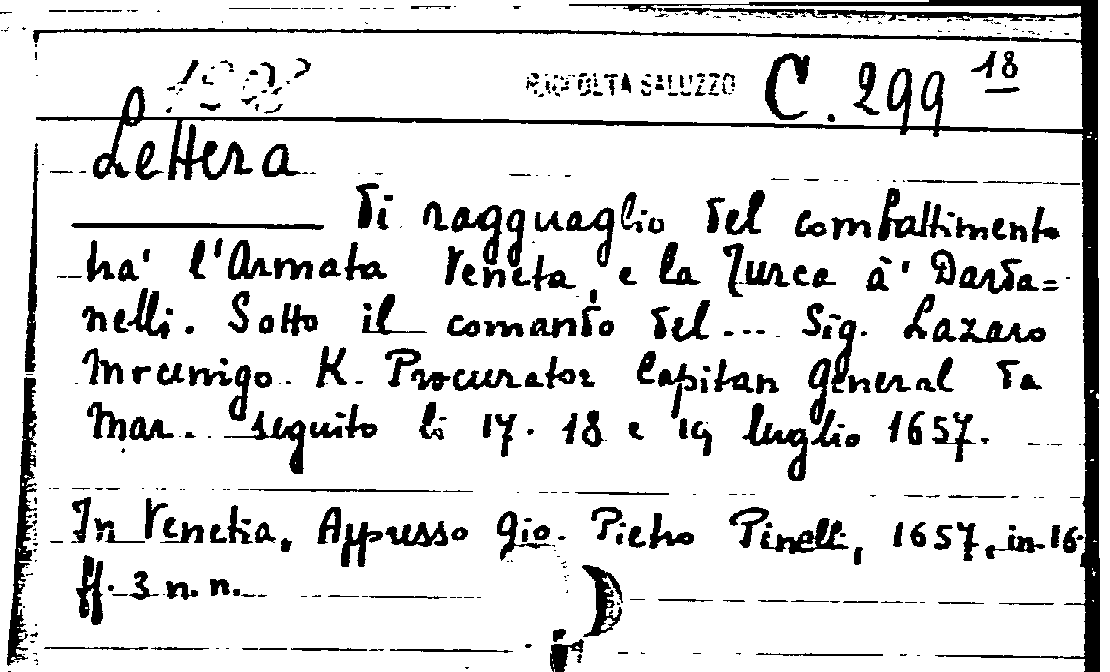 RACCOLTA SALUZZO C. 299 18
Lettera
di ragguaglio del combattimento
tra' l'Armata Veneta, e la Turca à' Darda=
nelli. Sotto il comando del... Sig. Lazaro
Mocenigo K. Procurator Capitan General da
Mar. seguito li 17. 18 e 19 luglio 1657.
In Venetia, Appresso Gio. Pietro Pinelli, 1657, in-16,
ff. 3 n. n.